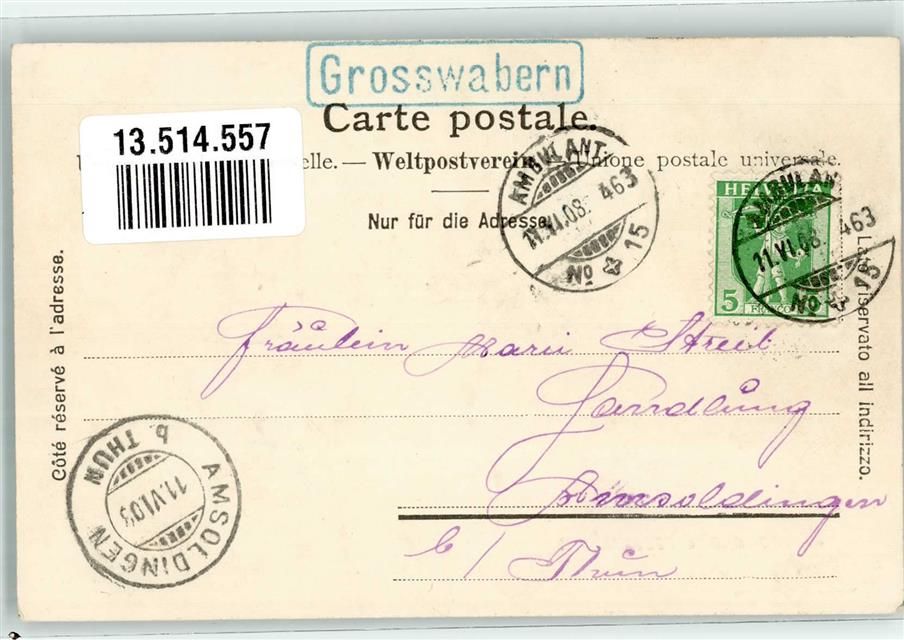 Grosswabern
Carte postale.
13.514.557
elle. — Weltpostverein — Unione postale universale.
Nur für die Adresse.
AMBULANT
11.VI.08. 463
No 15
HELVETIA
5
FRANCO
AMBULANT
11.VI.08. 463
No 15
Côté réservé à l'adresse.
Lato riservato all indirizzo.
Fräulein Marie Streit
Handlung
Amsoldingen
b/ Thun
AMSOLDINGEN
p. THUN
11.VI.08